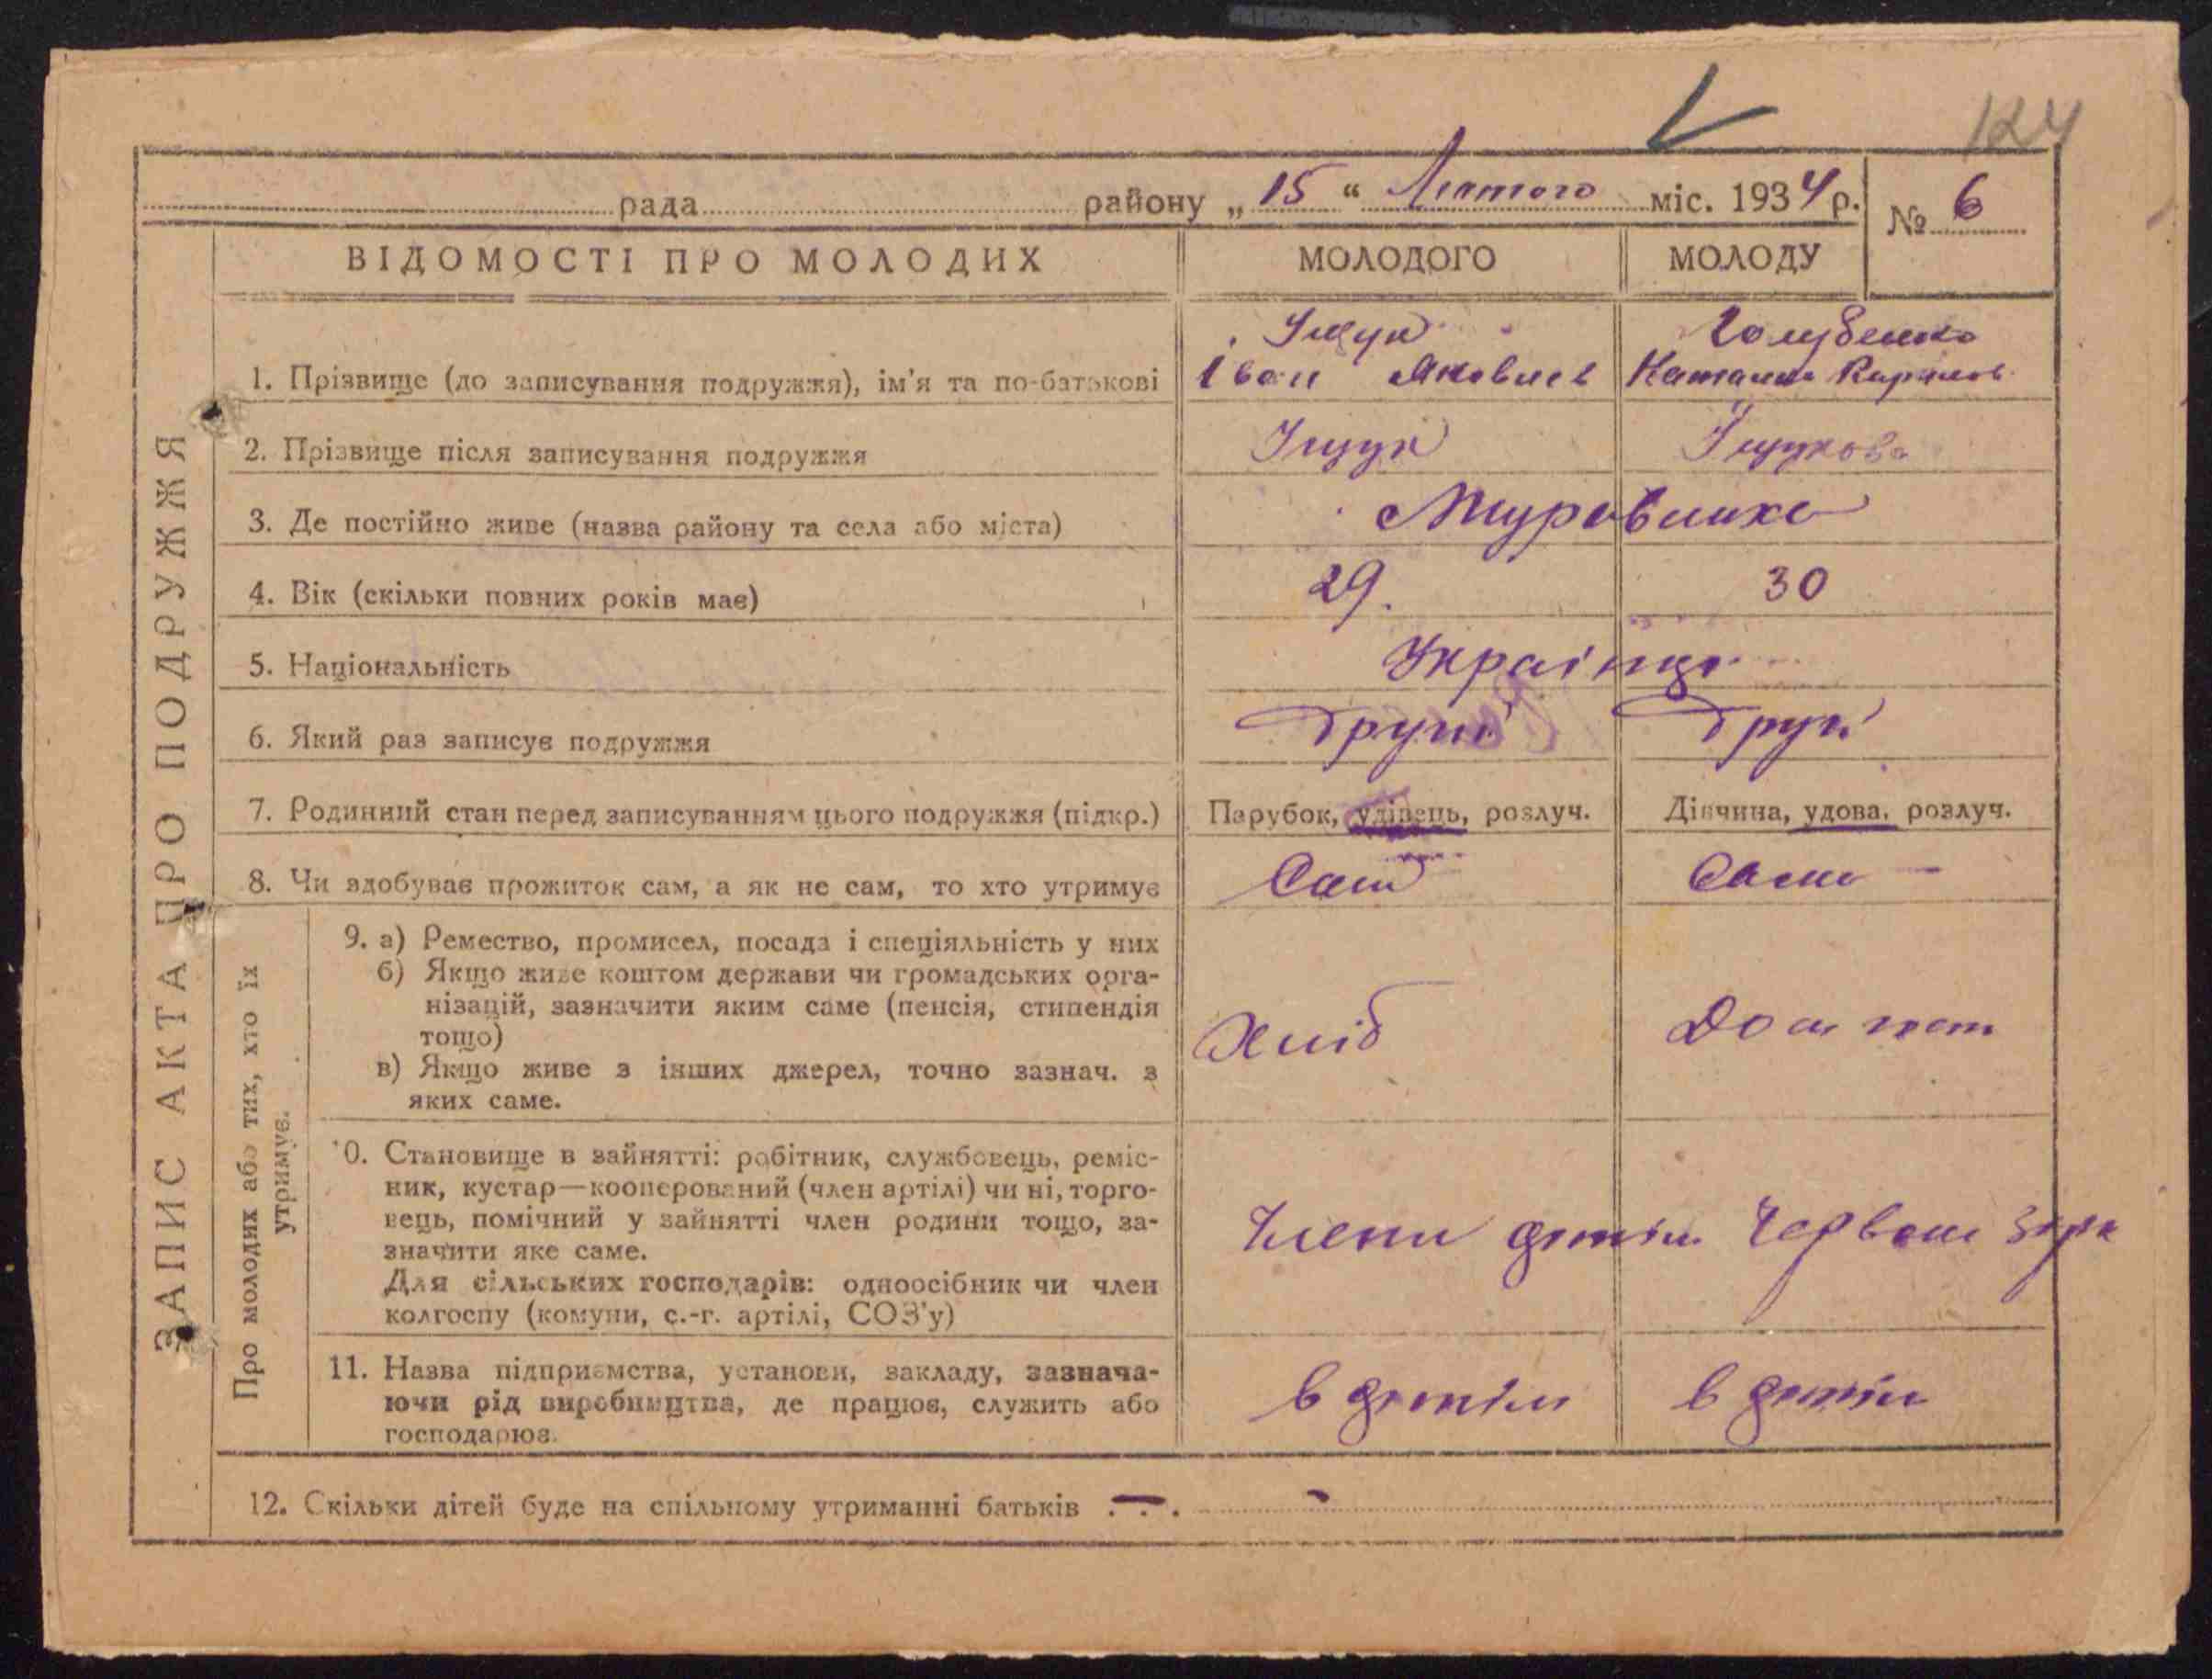 124
рада района „ 15 “ Лютого міс. 1934 р.
№ 6
ВІДОМОСТІ ПРО МОЛОДИХ МОЛОДОГО МОЛОДУ
ЗАПИС АКТА ПРО ПОДРУЖЖЯ
Іщук Голубенко
1. Прізвище (до записування подружжя), ім'я та по-батькові Іван Яковлев
2. Прізвище після записування подружжя Іщук Іщукова
3. Де постійно живе (назва району та села або міста)
4. Вік (скільки повних років має) 29. 30
5. Національність Українці
6. Який раз записує подружжя Другий Другий
7. Родинний стан перед записуванням цього подружжя (підкр.) Парубок, удівець, розлуч. Дівчина, удова, розлуч.
8. Чи здобуває прожиток сам, а як не сам, то хто утримує Сам Сама
Про молодих або тих, хто їх утримує.
9. а) Ремество, промисел, посада і спеціяльність у них
б) Якщо живе коштом держави чи громадських орга-
нізацій, зазначити яким саме (пенсія, стипендія
тощо)
в) Якщо живе з інших джерел, точно зазнач. з
яких саме.
Хліб Дом госп
10. Становище в зайнятті: робітник, службовець, реміс-
ник, кустар—кооперований (член артілі) чи ні, торго-
вець, помічний у зайнятті член родини тощо, за-
значити яке саме.
Для сільських господарів: одноосібник чи член
колгоспу (комуни, с.-г. артілі, СОЗ'у)
Члени артіли Червона Зірка
11. Назва підприємства, установи, закладу, зазнача-
ючи рід виробництва, де працює, служить або
господарює.
в артіли в артіли
12. Скільки дітей буде на спільному утриманні батьків —